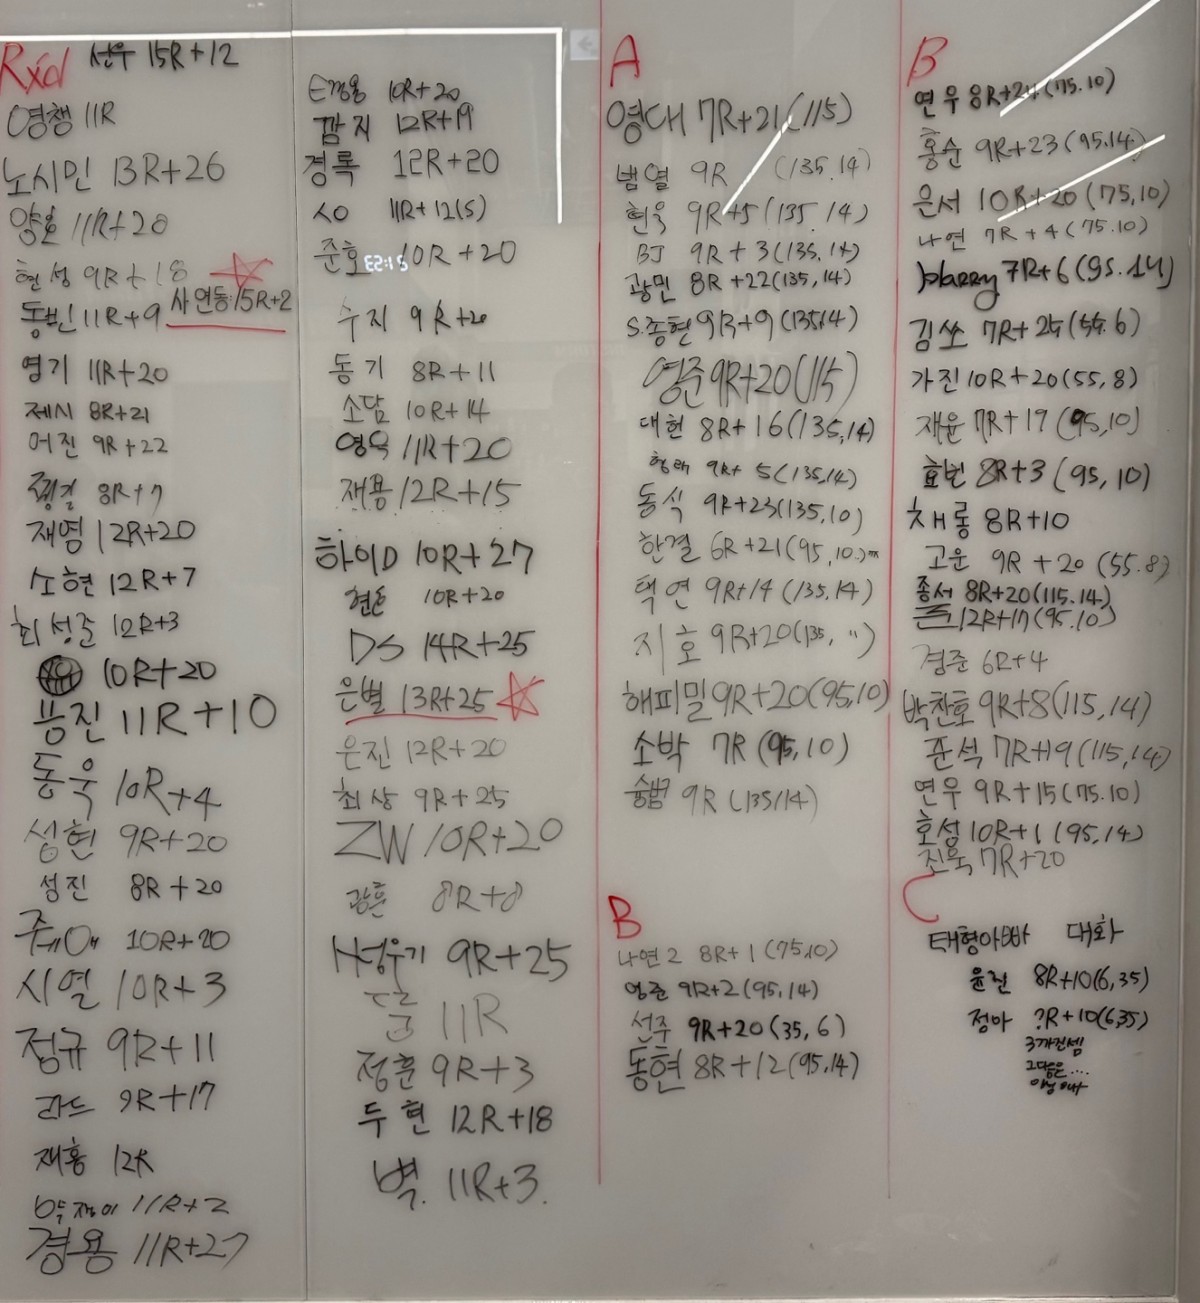 Rxd 선우 15R+12
영챙 11R
노시민 13R+26
양호 11R+20
현성 9R+18
동빈 11R+9 사연동:15R+2
영기 11R+20
제시 8R+21
머진 9R+22
8R+7
재영 12R+20
소현 12R+7
최성준 12R+3
10R+20
용진 11R+10
동욱 10R+4
성현 9R+20
성진 8R+20
쥬쎄에 10R+20
시열 10R+3
정규 9R+11
라드 9R+17
재홍 12R
11R+2
경용 11R+27
E경용 10R+20
깜지 12R+19
경록 12R+20
시O 11R+12(5)
준호 10R+20
수지 9R+20
동기 8R+11
소담 10R+14
영욱 11R+20
재용 12R+15
하이D 10R+27
현은 10R+20
DS 14R+25
은별 13R+25
은진 12R+20
최상 9R+25
ZW 10R+20
광훈 8R+8
9R+25
11R
정훈 9R+3
두현 12R+18
벽. 11R+3.
A
영대 7R+21(115)
범열 9R (135.14)
현욱 9R+5(135.14)
BJ 9R+3(135.14)
광민 8R+22(135,14)
S.종현 9R+9(135,14)
영준 9R+20(115)
대현 8R+16(135,14)
형래 9R+5(135,14)
동식 9R+23(135,10)
한결 6R+21(95,10)
택연 9R+14(135,14)
지호 9R+20(135, ")
해피밀 9R+20(95,10)
소박 7R(95,10)
슝범 9R(135,14)
B
나연2 8R+1(75,10)
영준 9R+2(95,14)
선주 9R+20(35,6)
동현 8R+12(95,14)
B
연우 8R+24(75.10)
홍순 9R+23(95.14)
은서 10R+20(75,10)
나연 7R+4(75.10)
blazzy 7R+6(95.14)
김쏘 7R+25(55.6)
가진 10R+20(55,8)
재윤 7R+19(95,10)
효빈 8R+3(95,10)
채롱 8R+10
고운 9R+20(55.8)
종서 8R+20(115.14)
12R+17(95.10)
경준 6R+4
박찬호 9R+8(115,14)
준석 7R+19(115,14)
연우 9R+15(75.10)
호성 10R+1(95,14)
진욱 7R+20
C
태형아빠 대화
윤진 8R+10(6,35)
정아 ?R+10(6,35)
3까진셈
그다음은....